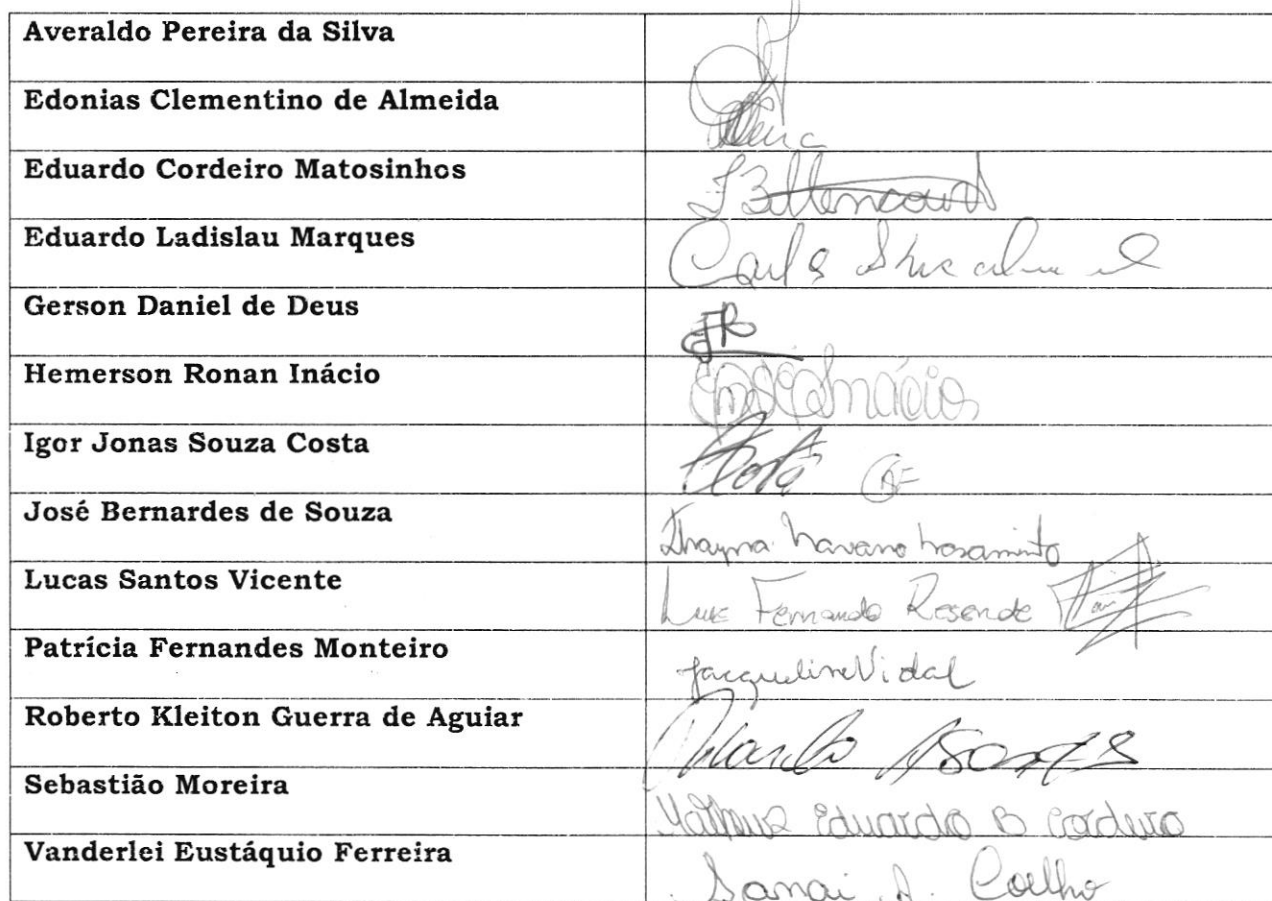 Averaldo Pereira da Silva
Edonias Clementino de Almeida
Eduardo Cordeiro Matosinhos
J Bittencourt
Eduardo Ladislau Marques
Gerson Daniel de Deus
Hemerson Ronan Inácio
Inácio
Igor Jonas Souza Costa
Costa
José Bernardes de Souza
Lucas Santos Vicente
Luiz Fernando Resende
Patrícia Fernandes Monteiro
Jacqueline Vidal
Roberto Kleiton Guerra de Aguiar
Sebastião Moreira
Matheus Eduardo B Cordeiro
Vanderlei Eustáquio Ferreira
Sanai A. Coelho